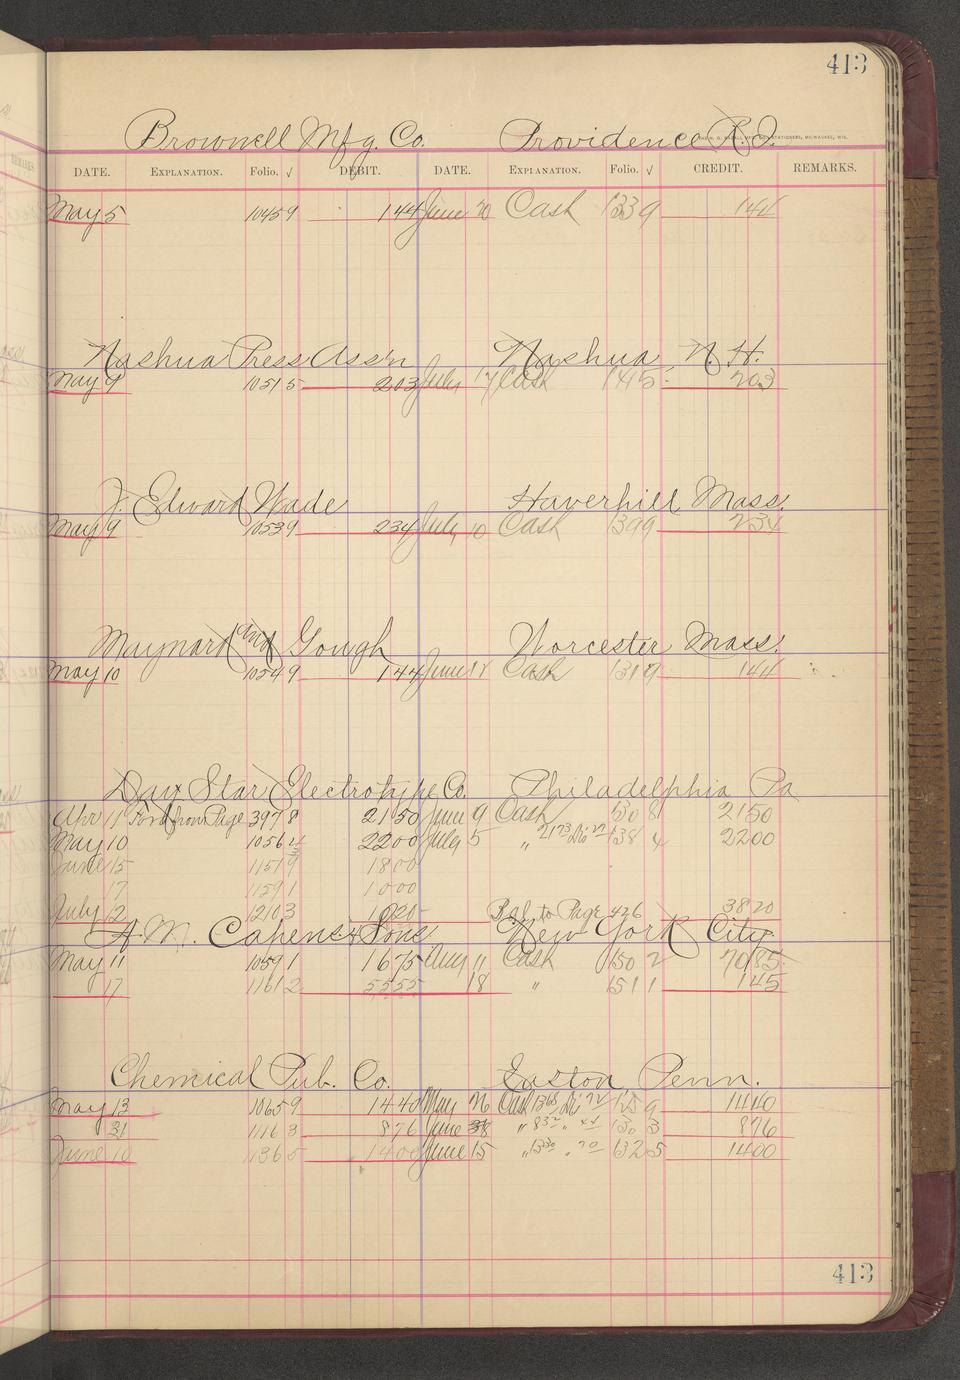 413
Brownell Mfg. Co. Providence R.I.
DATE. EXPLANATION. Folio. √ DEBIT. DATE. EXPLANATION. Folio. √ CREDIT. REMARKS.
May 5 1045 9 144 June 20 Cash 133 9 144
Nashua Press Ass'n Nashua N.H.
May 9 1051 5 203 July 17 Cash 141 5 203
J. Edward Wade Haverhill Mass.
May 9 1053 9 234 July 10 Cash 139 9 234
Maynard and Gough Worcester Mass.
May 10 1054 9 144 June Cash 131 9 144
Day Star Electrotype Co. Philadelphia Pa
Apr 11 Ford from Page 397 8 2150 June 9 Cash 130 8 2150
May 10 1056 4 2200 July 5 " 138 4 2200
June 15 1151 9 1800
17 1159 1 1000
July 12 1210 3 1020 Bal to Page 426 3820
A.M. Capens Sons New York City
May 11 1059 1 1675 Aug 11 Cash 150 2 7085
17 1161 2 5555 18 " 151 1 145
Chemical Pub. Co. Easton, Penn.
May 13 1065 9 1440 May 26 Cash 1368 Di 72 125 9 1440
31 1116 3 876 June 8 " 832 " 44 130 3 876
June 10 136 5 1400 June 15 " 1330 " 70 132 5 1400
413